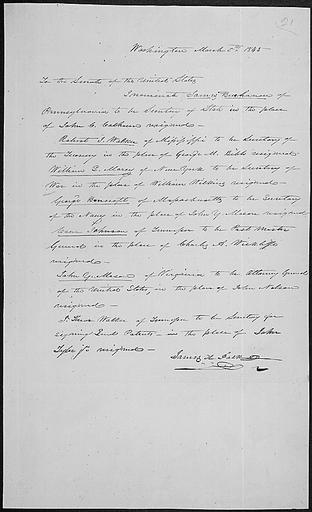 21
Washington March 5th 1845
To the Senate of the United States
I nominate James Buchanan of
Pennsylvania to be Secretary of State in the place
of John C. Calhoun resigned—
Robert J. Walker of Mississippi to be Secretary of
the Treasury in the place of George M. Bibb resigned
William L. Marcy of New York to be Secretary of
War in the place of William Wilkins resigned—
George Bancroft of Massachusetts to be Secretary
of the Navy in the place of John Y. Mason resigned
Cave Johnson of Tennessee to be Post Master
General in the place of Charles A. Wickliffe
resigned—
John Y. Mason of Virginia to be Attorney General
of the United States, in the place of John Nelson
resigned—
J. Knox Walker of Tennessee to be Secretary for
signing Land Patents— in the place of John
Tyler Jr. resigned—
James K. Polk